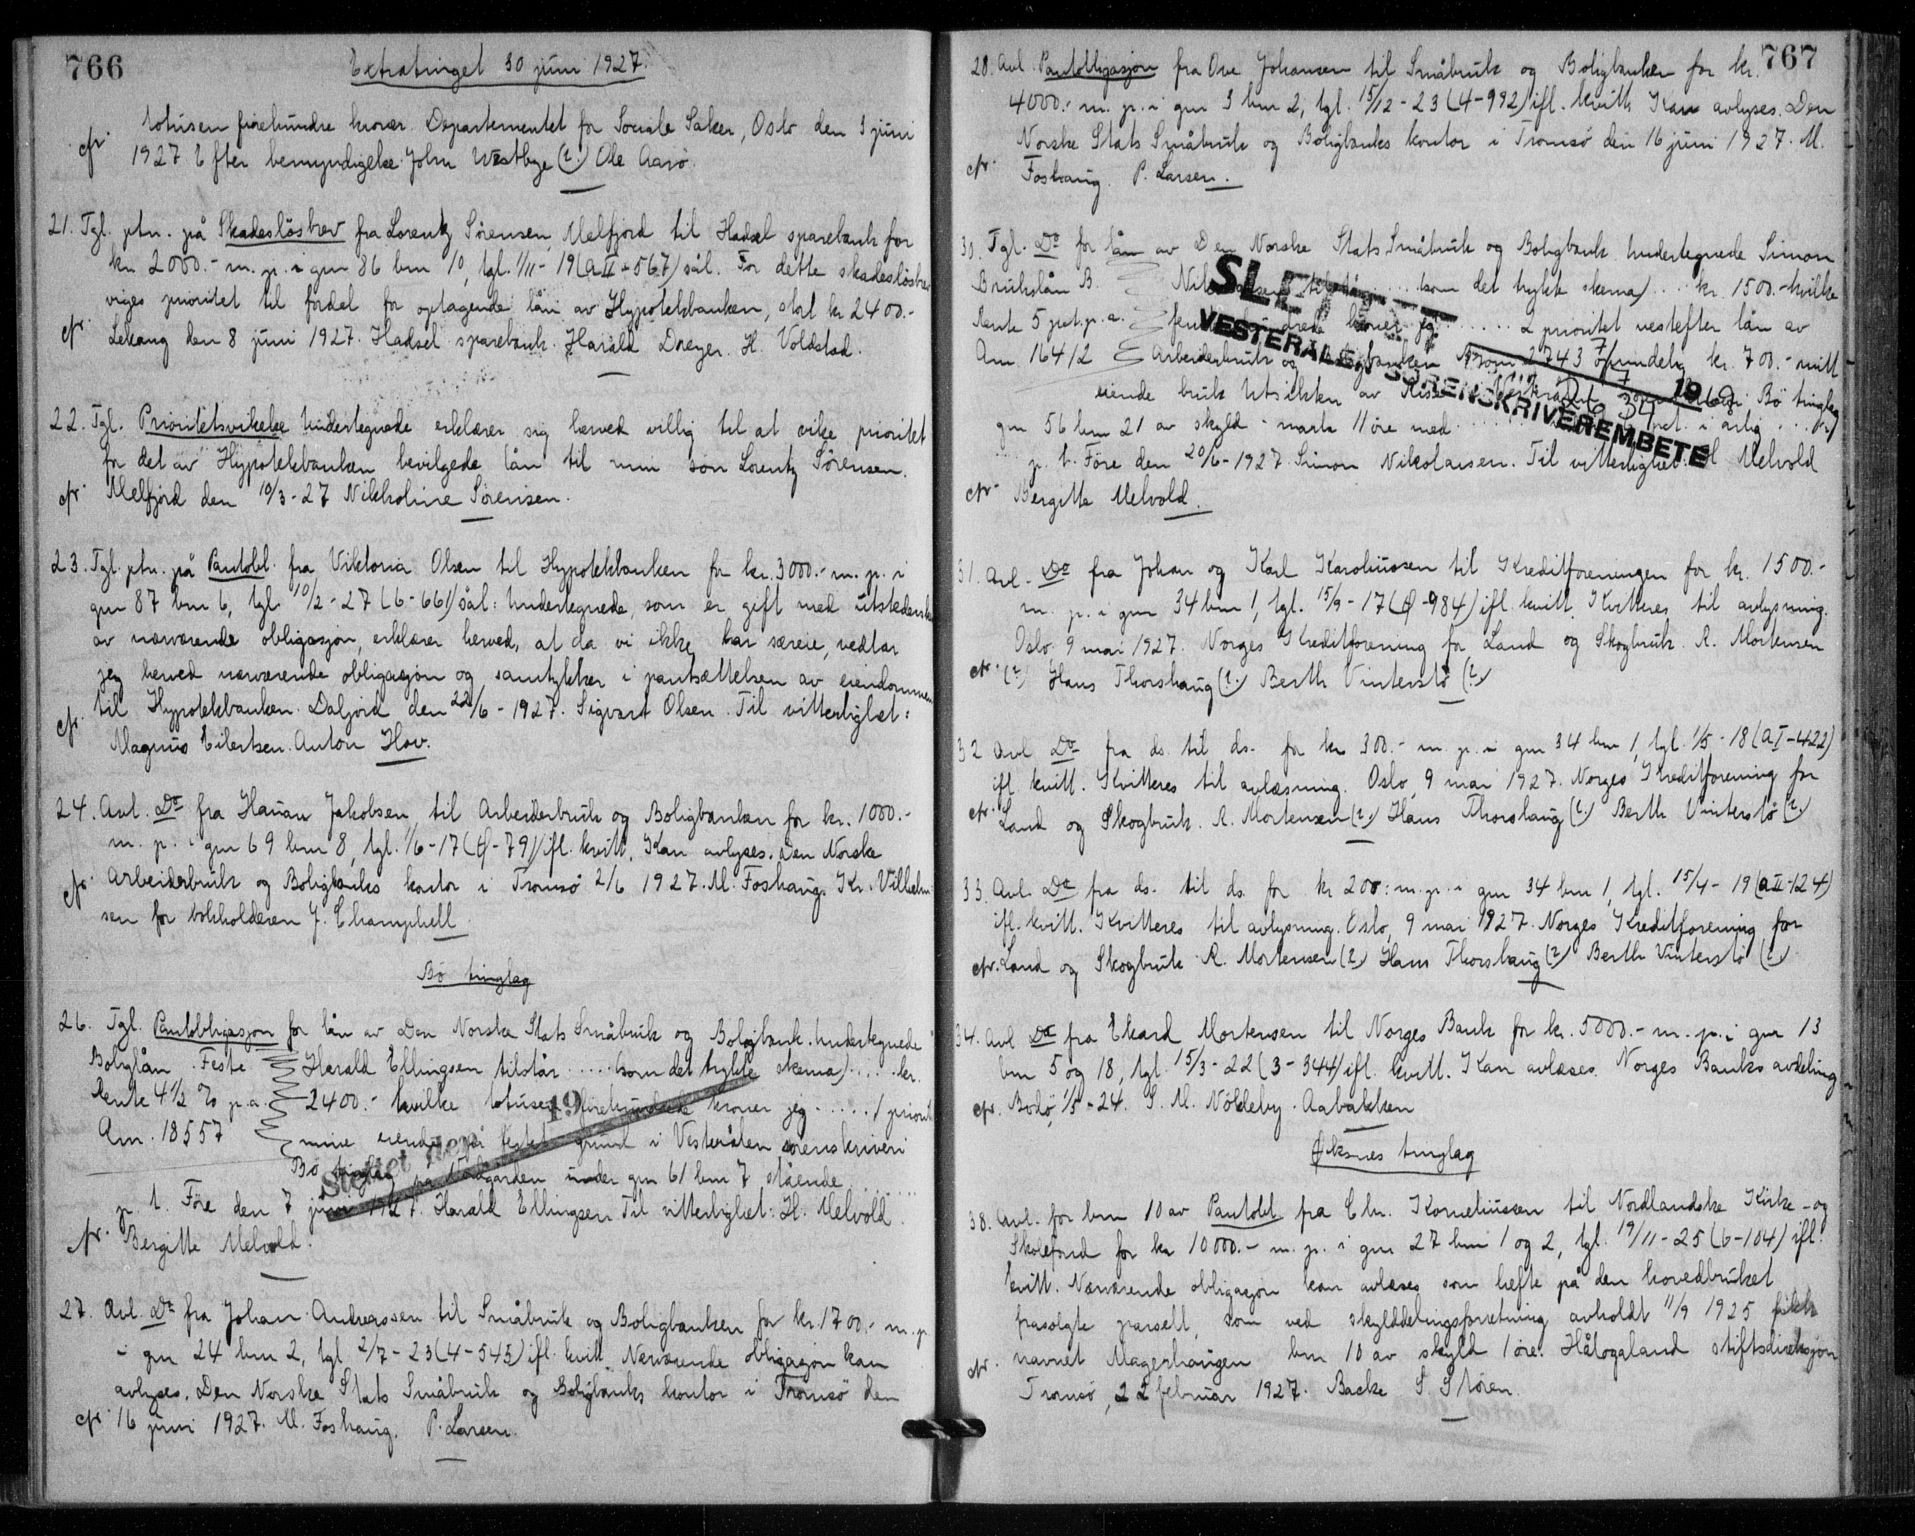 766
Extratinget 30 juni 1927.
totusen firehundre kroner. Departementet for Sociale Saker, Oslo den 3 juni
cfr. 1927 Efter bemyndigelse John Westbye (?) Ole Aarø.
21. Tgl. ptn. på Skadesløsbrev fra Lorentz Sørensen, Melfjord til Hadsel sparebank for
kr. 2000.- m. p. i gnr 86 bnr 10, tgl. 1/11-19 (AII-567) sål. For dette skadesløsbrev
viges prioritet til fordel for optagende lån av Hypotekbanken, stort kr 2400.-
cfr. Lekang den 8 juni 1927. Hadsel sparebank. Harald Dreyer. H. Voldstad.
22. Tgl. Prioritetsvikelse Undertegnede erklærer sig herved villig til at vike prioritet
for det av Hypotekbanken bevilgede lån til min søn Lorentz Sørensen.
cfr. Melfjord den 10/3-27 Nikholine Sørensen.
23. Tgl. ptn. på Pantobl. fra Viktoria Olsen til Hypotekbanken for kr. 3000.- m. p. i
gnr 87 bnr 6, tgl. 10/2-27 (6-661) sål: Undertegnede, som er gift med utstederen
av nærværende obligasjon, erklærer herved, at da vi ikke har særeie, vedtar
jeg herved nærværende obligasjon og samtykker i pantsættelsen av eiendommen
cfr. til Hypotekbanken. Daljord den 22/6-1927. Sigvart Olsen. Til vitterlighet:
Magnus Eilertsen. Anton Hov.
24. Avl. Do fra Hauan Jakobsen til Arbeiderbruk og Boligbanken for kr. 1000.-
m. p. i gnr 69 bnr 8, tgl. 1/6-17 (Ø-79) ifl. kvitt. Kan avlyses. Den Norske
cfr. Arbeiderbruk og Boligbanks kontor i Tromsø 2/6 1927. M. Foshaug. Kr. Vilhelm-
sen for bokholderen J. Champhell
Bø tinglag
26. Tgl. Pantobligasjon for lån av Den Norske Stats Småbruk og Boligbank. Undertegnede
Boliglån. Feste Harald Ellingsen tilstår ..... (som det trykte skema) ..... kr.
Rente 4½ % p.a. 2400.- hvilke totusen firehundrede kroner jeg ...... 1 priorit
Am. 18557 mine eiende på festet grund i Vesterålen sorenskriveri
Bø tinglag på Nordgarden under gnr 61 bnr 7 stående ......
Slettet den 19
p. t. Føre den 7 juni 1927. Harald Ellingsen. Til vitterlighet: H. Melvold.
cfr. Bergitte Melvold.
27. Avl. Do fra Johan Andreassen til Småbruk og Boligbanken for kr. 1700.- m. p.
i gnr 24 bnr 2, tgl. 2/7-23 (4-545) ifl. kvitt. Nærværende obligasjon kan
avlyses. Den Norske Stats Småbruk og Boligbanks kontor i Tromsø den
cfr. 16 juni 1927. M. Foshaug. P. Larsen.
767
28. Avl Pantobligasjon fra Ove Johansen til Småbruk og Boligbanken for kr.
4000.- m. p. i gnr 3 bnr 2, tgl. 15/12-23 (4-992) ifl. kvitt. Kan avlyses. Den
Norske Stats Småbruk og Boligbanks kontor i Tromsø den 16 juni 1927. M.
cfr. Foshaug. P. Larsen.
30. Tgl. Do for lån av Den Norske Stats Småbruk og Boligbank. Undertegnede Simon
Brukslån B. Nikolaisen tilstår ...... (som det trykte skema) .... kr. 1500.- hvilke
Rente 5 pct. p. a. femten hundrede kroner jeg ...... 2 prioritet nestefter lån av
Am 16412 Arbeiderbruk og Boligbanken kr. 700.- mitt
eiende bruk Utsikken av Bø tinglag
SLETTET
VESTERÅLEN SORENSKRIVEREMBETE
gnr 56 bnr 21 av skyld - mark 11 øre med ...... pct. i årlig ....
p. t. Føre den 20/6-1927. Simon Nikolaisen. Til vitterlighet: H Melvold
cfr. Bergitte Melvold.
31. Avl. Do fra Johan og Karl Karoliussen til Kreditforeningen for kr. 1500.-
m. p. i gnr 34 bnr 1, tgl. 15/9-17 (Ø-984) ifl. kvitt. Kvitteres til avlysning.
Oslo 9 mai 1927. Norges Kreditforening for Land og Skogbruk. R. Mortensen
cfr. (?) Hans Thorshaug (?) Berth Vinterstø (?)
32 Avl Do fra ds. til ds. for kr 300.- m. p. i gnr 34 bnr 1, tgl. 1/5-18 (AI-422)
ifl kvitt. Kvitteres til avlæsning. Oslo, 9 mai 1927. Norges Kreditforening for
cfr. Land og Skogbruk. R. Mortensen (?) Hans Thorshaug (?) Berth Vinterstø (?)
33. Avl. Do fra ds. til ds. for kr 200.- m. p. i gnr 34 bnr 1, tgl. 15/4-19 (AII-124)
ifl. kvitt. Kvitteres til avlysning. Oslo, 9 mai 1927. Norges Kreditforening for
cfr. Land og Skogbruk R. Mortensen (?) Hans Thorshaug (?) Berth Vinterstø (?)
34. Avl Do fra Ekard Mortensen til Norges Bank for kr. 5000.- m. p. i gnr 13
bnr 5 og 18, tgl. 15/3-22 (3-344) ifl. kvitt. Kan avlæses. Norges Banks avdeling
cfr. Bodø, 1/5-24. S. M. Nøkleby. Aabakken
Øksnes tinglag
38. Avl. for bnr 10 av Pantobl. fra Chr. Korneliussen til Nordlandske Kirke- og
Skolefond for kr 10000.- m. p. i gnr 27 bnr 1 og 2, tgl. 19/11-25 (6-104) ifl.
kvitt. Nærværende obligasjon kan avlæses som hefte på den hovedbruket
frasolgte parsell, som ved skylddelingsforretning avholdt 11/9 1925 fikk
cfr. navnet Magerhaugen bnr 10 av skyld 1 øre. Hålogaland stiftsdireksjon
Tromsø, 22 februar 1927. Backe S. Støren.